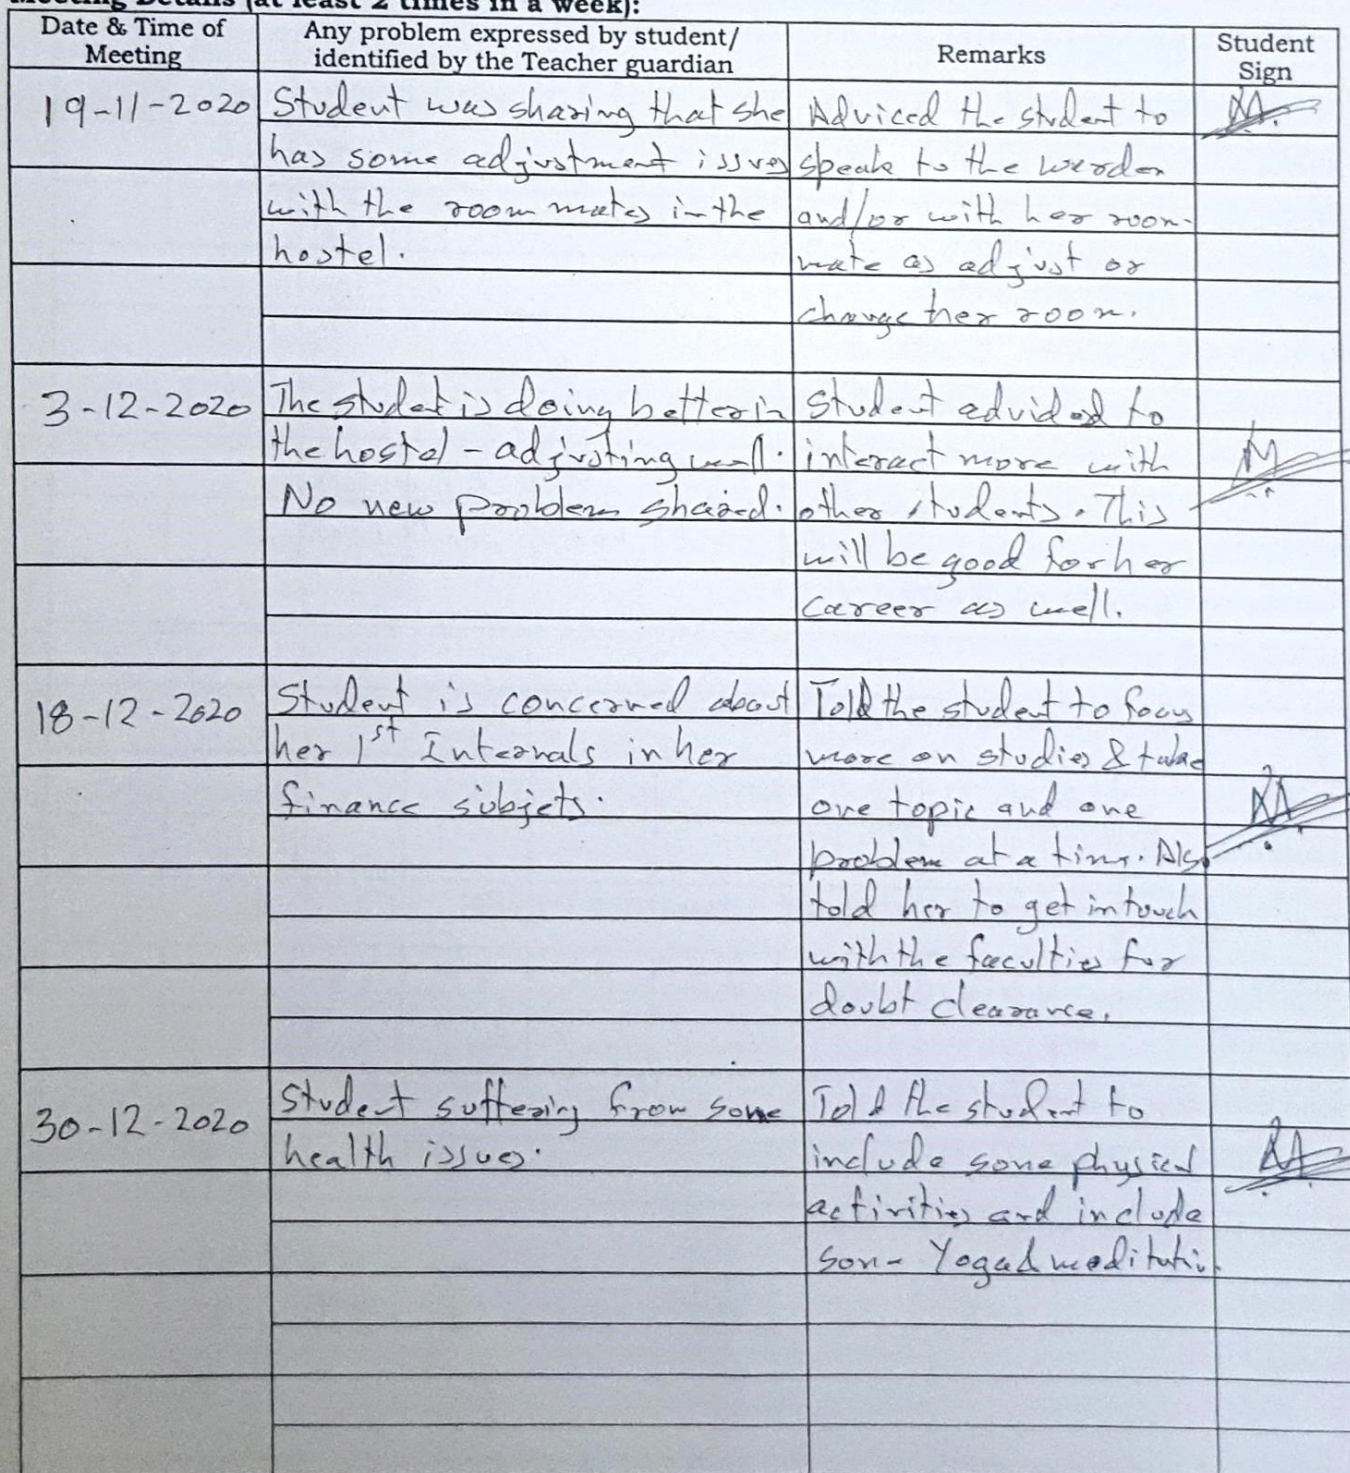 Meeting Details (at least 2 times in a week):
Date & Time of Meeting
Any problem expressed by student/ identified by the Teacher guardian
Remarks
Student Sign
19-11-2020
Student was sharing that she
has some adjustment issues
with the room mates in the
hostel.
Adviced the student to
speak to the warden
and/or with her room-
mate as adjust or
change her room.
3-12-2020
The student is doing better in
the hostel - adjusting well.
No new problem shared.
Student advided to
interact more with
other students. This
will be good for her
career as well.
18-12-2020
Student is concerned about
her 1st Internals in her
finance subjets.
Told the student to focus
more on studies & take
one topic and one
problem at a time. Also
told her to get in touch
with the faculties for
doubt clearance.
30-12-2020
Student suffering from some
health issues.
Told the student to
include some physical
activities and include
some Yoga & meditation